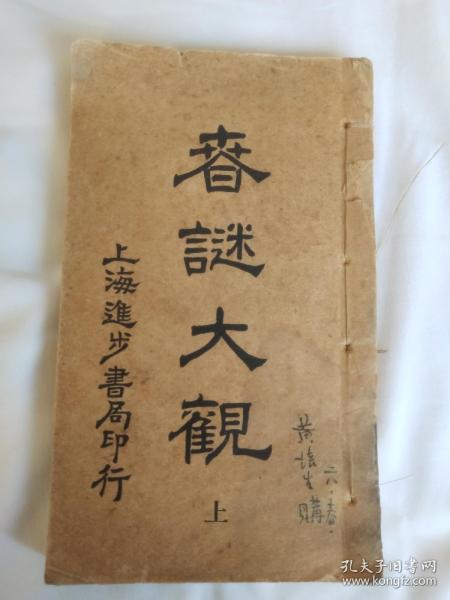 春謎大觀
上
上海進步書局印行
二八.春.
黃培生購
孔夫子旧书网
www.kongfz.com